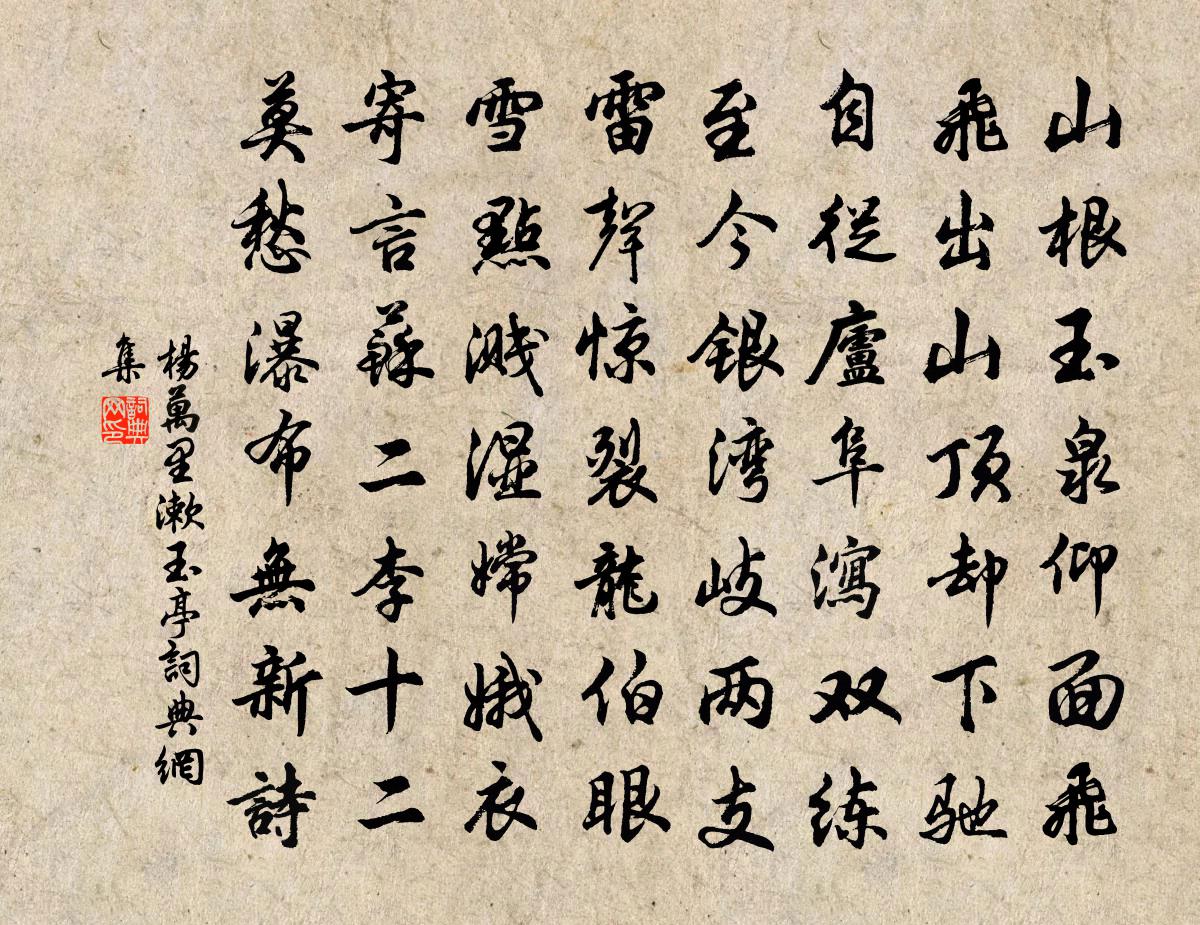 山根玉泉仰面飛
飛出山顶却下驰
自從廬阜瀉双练
至今銀湾岐两支
雷聲惊裂龍伯眼
雪點溅湿嫦娥衣
寄言蘇二李十二
莫愁瀑布無新詩
楊萬里漱玉亭詞典網
集
詞典
网印